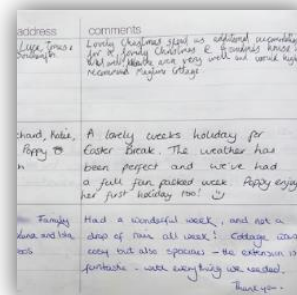 address comments
Lovely Christmas spent as additional accommodation
for a lovely Christmas @ Grandma's house
and very well and would highly
recommend Cottage.
chard, Katie, A lovely weeks holiday for
Poppy Easter Break. The weather has
n been perfect and we've had
a full fun packed week. Poppy enjoy
her first holiday too!
Family Had a wonderful week, and not a
Luna and Isla drop of rain all week! Cottage was
cosy but also spacious - the extension is
fantastic - with everything we needed.
Thank you.